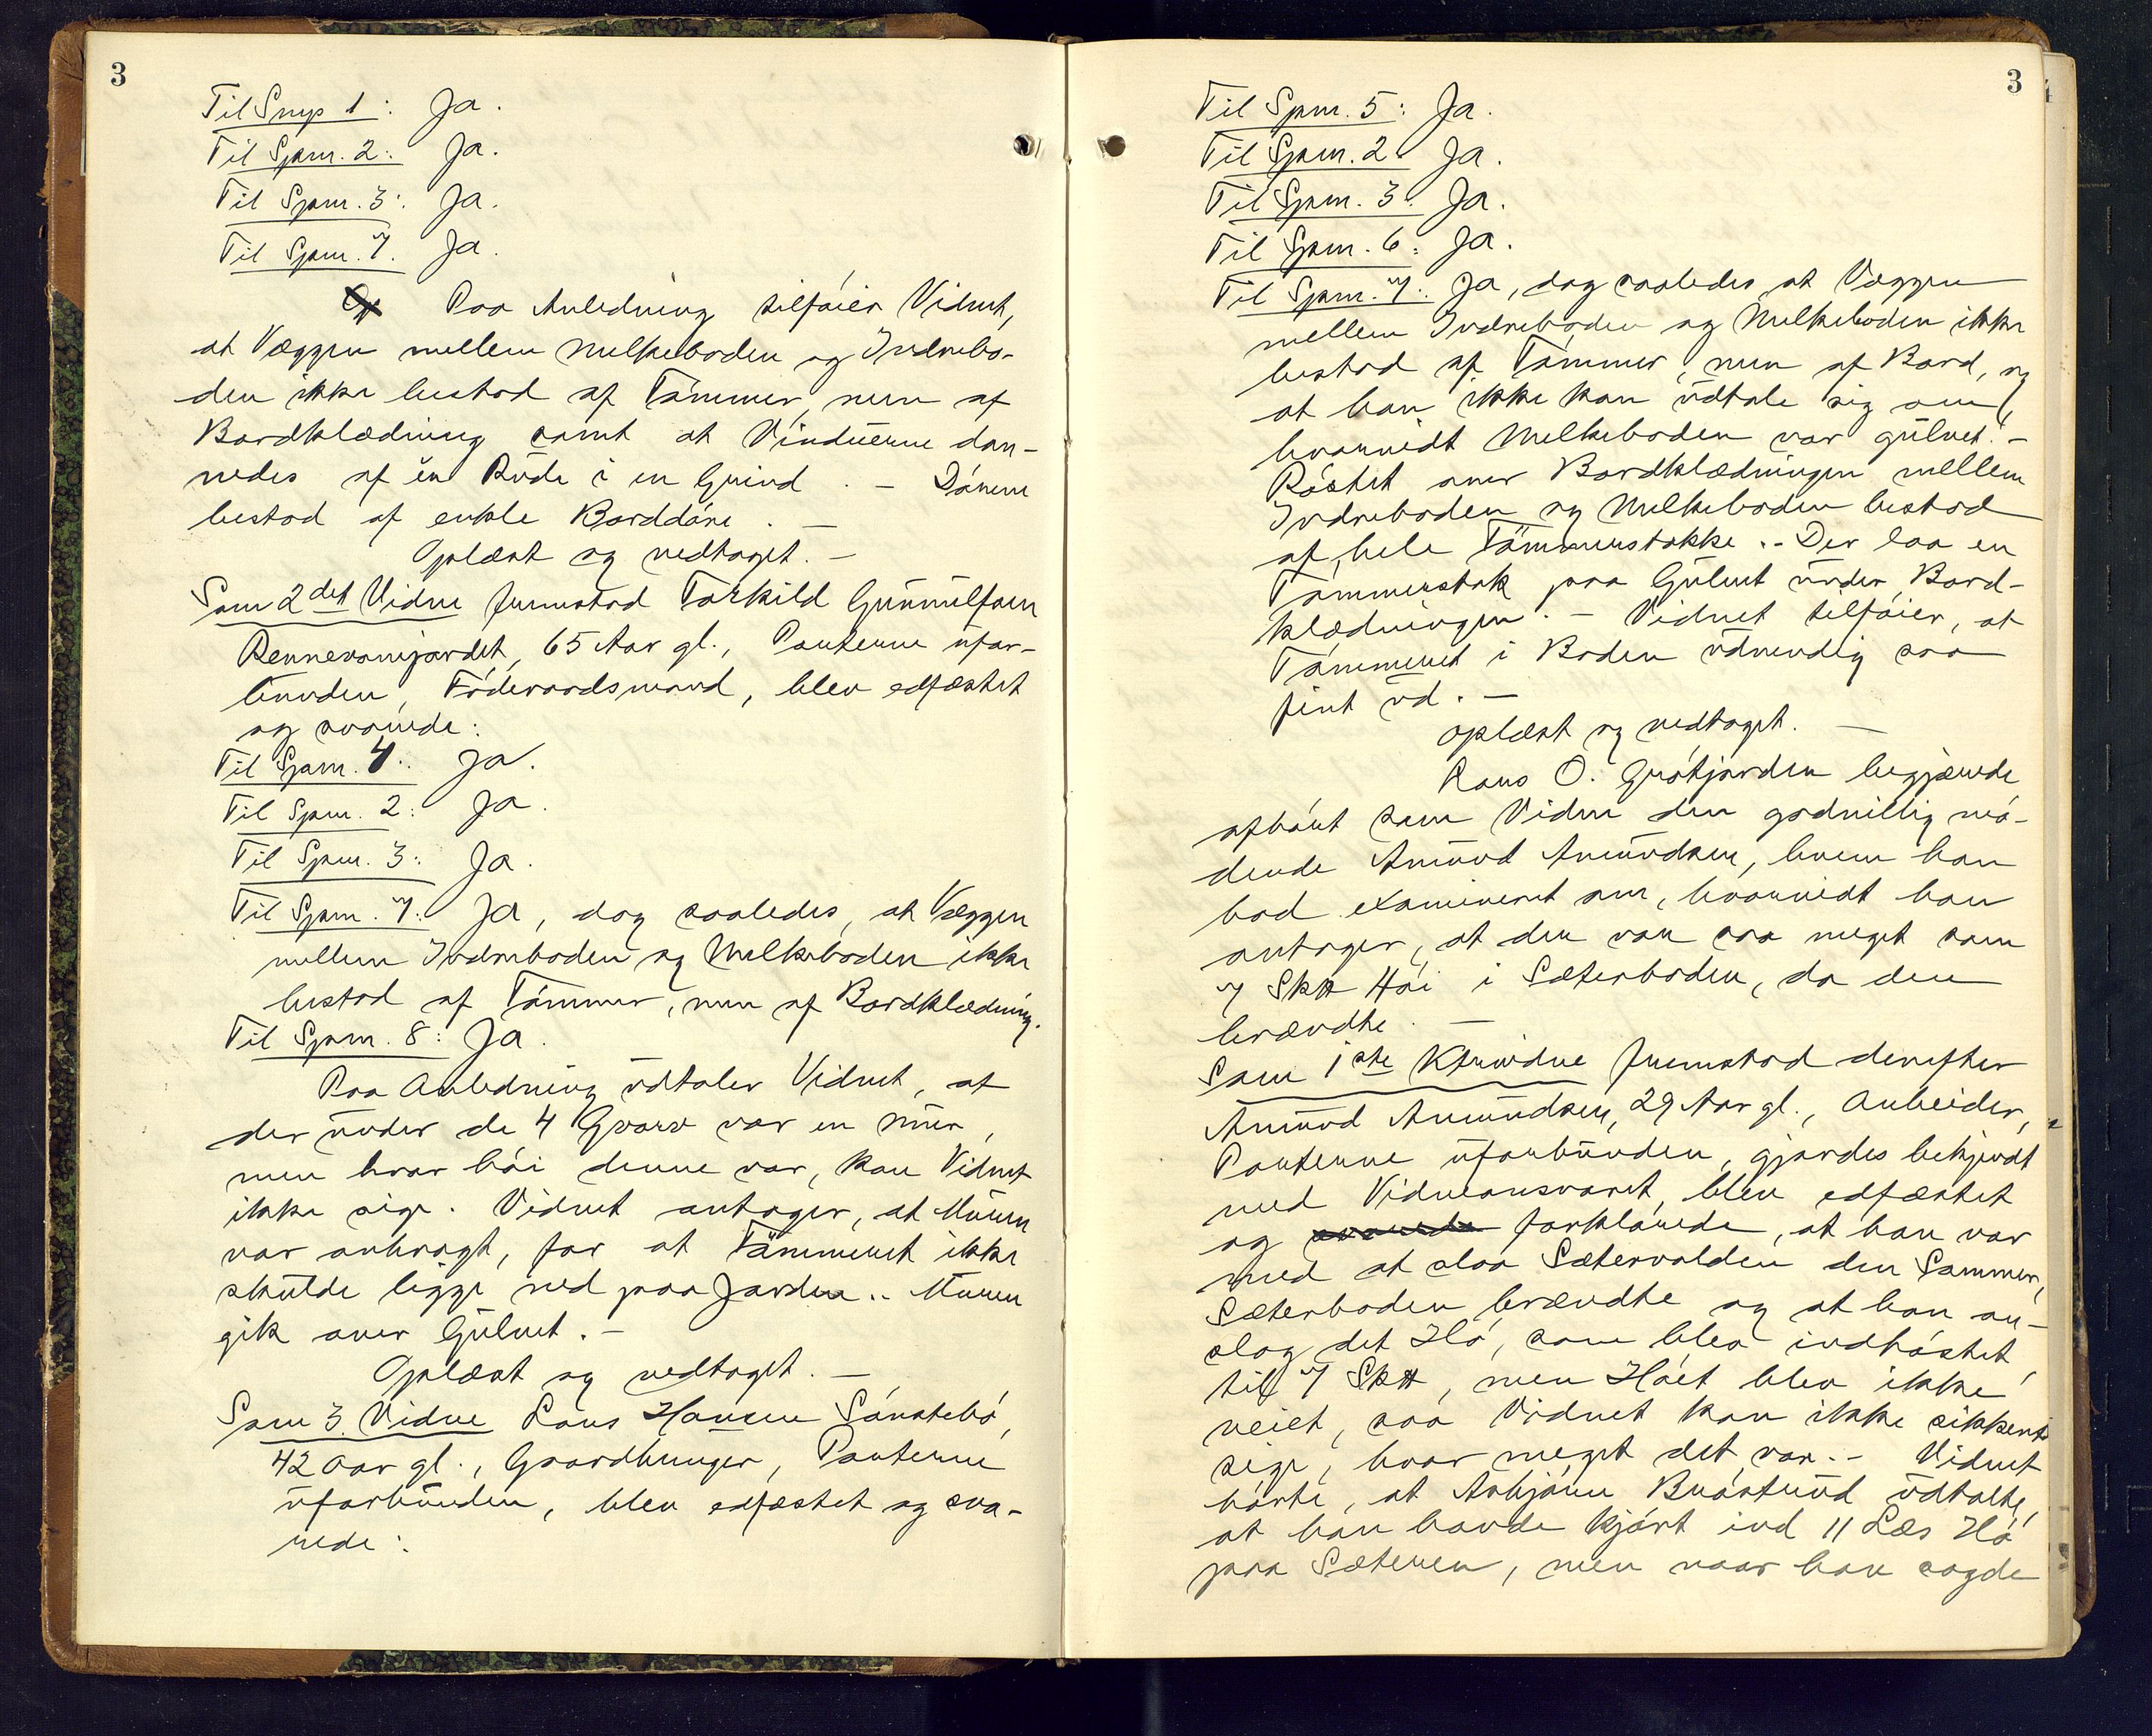 3
Til Smp 1: Ja.
Til Spm. 2: Ja.
Til Spm. 3: Ja.
Til Spm. 7. Ja.
Paa Anledning tilføier Vidnet,
at Væggen mellem Melkeboden og Indrebo-
den ikke bestod af Tømmer, men af
Bordklædning samt at Vinduerne dan-
nedes af én Rude i en Grind. - Dørene
bestod af enkle Borddøre. -
Oplæst og vedtaget. -
Som 2det Vidne fremstod Torkild Gunnulfsen
65 Aar gl., Parterne ufor-
bunden, Føderaadsmand, blev edfæstet
og svarede:
Til Spm. 4: Ja.
Til Spm. 2: Ja.
Til Spm. 3: Ja.
Til Spm. 7: Ja, dog saaledes, at Væggen
mellem Indreboden og Melkeboden ikke
bestod af Tømmer, men af Bordklædning.
Til Spm. 8: Ja.
Paa Anledning udtaler Vidnet, at
der under de 4 Hvarv var en Mur,
men hvor høi denne var, kan Vidnet
ikke sige. Vidnet antager, at Muren
var anbragt, for at Tømmeret ikke
skulde ligge ned paa Jorden. - Muren
gik over Gulvet. -
Oplæst og vedtaget. -
Som 3. Vidne Hansen Sønstebø,
42 Aar gl., Gaardbruger, Parterne
uforbunden, blev edfæstet og sva-
rede:
3
Til Spm. 5: Ja.
Til Spm. 2. Ja.
Til Spm. 3. Ja.
Til Spm. 6: Ja.
Til Spm. 7: Ja, dog saaledes, at Væggen
mellem Indreboden og Melkeboden ikke
bestod af Tømmer, men af Bord, og
at han ikke kan udtale sig om,
hvorvidt Melkeboden var gulvet. -
Røstet over Bordklædningen mellem
Indreboden og Melkeboden bestod
af hele Tømmerstokke. - Der laa en
Tømmerstok paa Gulvet under Bord-
klædningen. - Vidnet tilføier, at
Tømmeret i Boden udvendig saa
pent ud. -
Oplæst og vedtaget. -
O. Grøtjorden begjærede
afhørt som Vidne den godvillig mø-
dende Amund Amundsen, hvem han
bad examineret om, hvorvidt han
antager, at der var saa meget som
7 Sk℔ Høi i Sæterboden, da den
brændte. -
Som 1ste Ktrvidne fremstod derefter
Amund Amundsen, 29 Aar gl., Arbeider,
Parterne uforbunden, gjordes bekjendt
med Vidneansvaret, blev edfæstet
og svarede forklarede, at han var
med at slaa Sætervolden den Sommer,
Sæterboden brændte og at han an-
slog det Hø, som blev indhøstet,
til 7 Sk℔, men Høet blev ikke
veiet, saa Vidnet kan ikke sikkert
sige, hvor meget det var. - Vidnet
hørte, at Asbjørn udtalte,
at han havde kjørt ind 11 Læs Hø
paa Sæteren, men naar han sagde